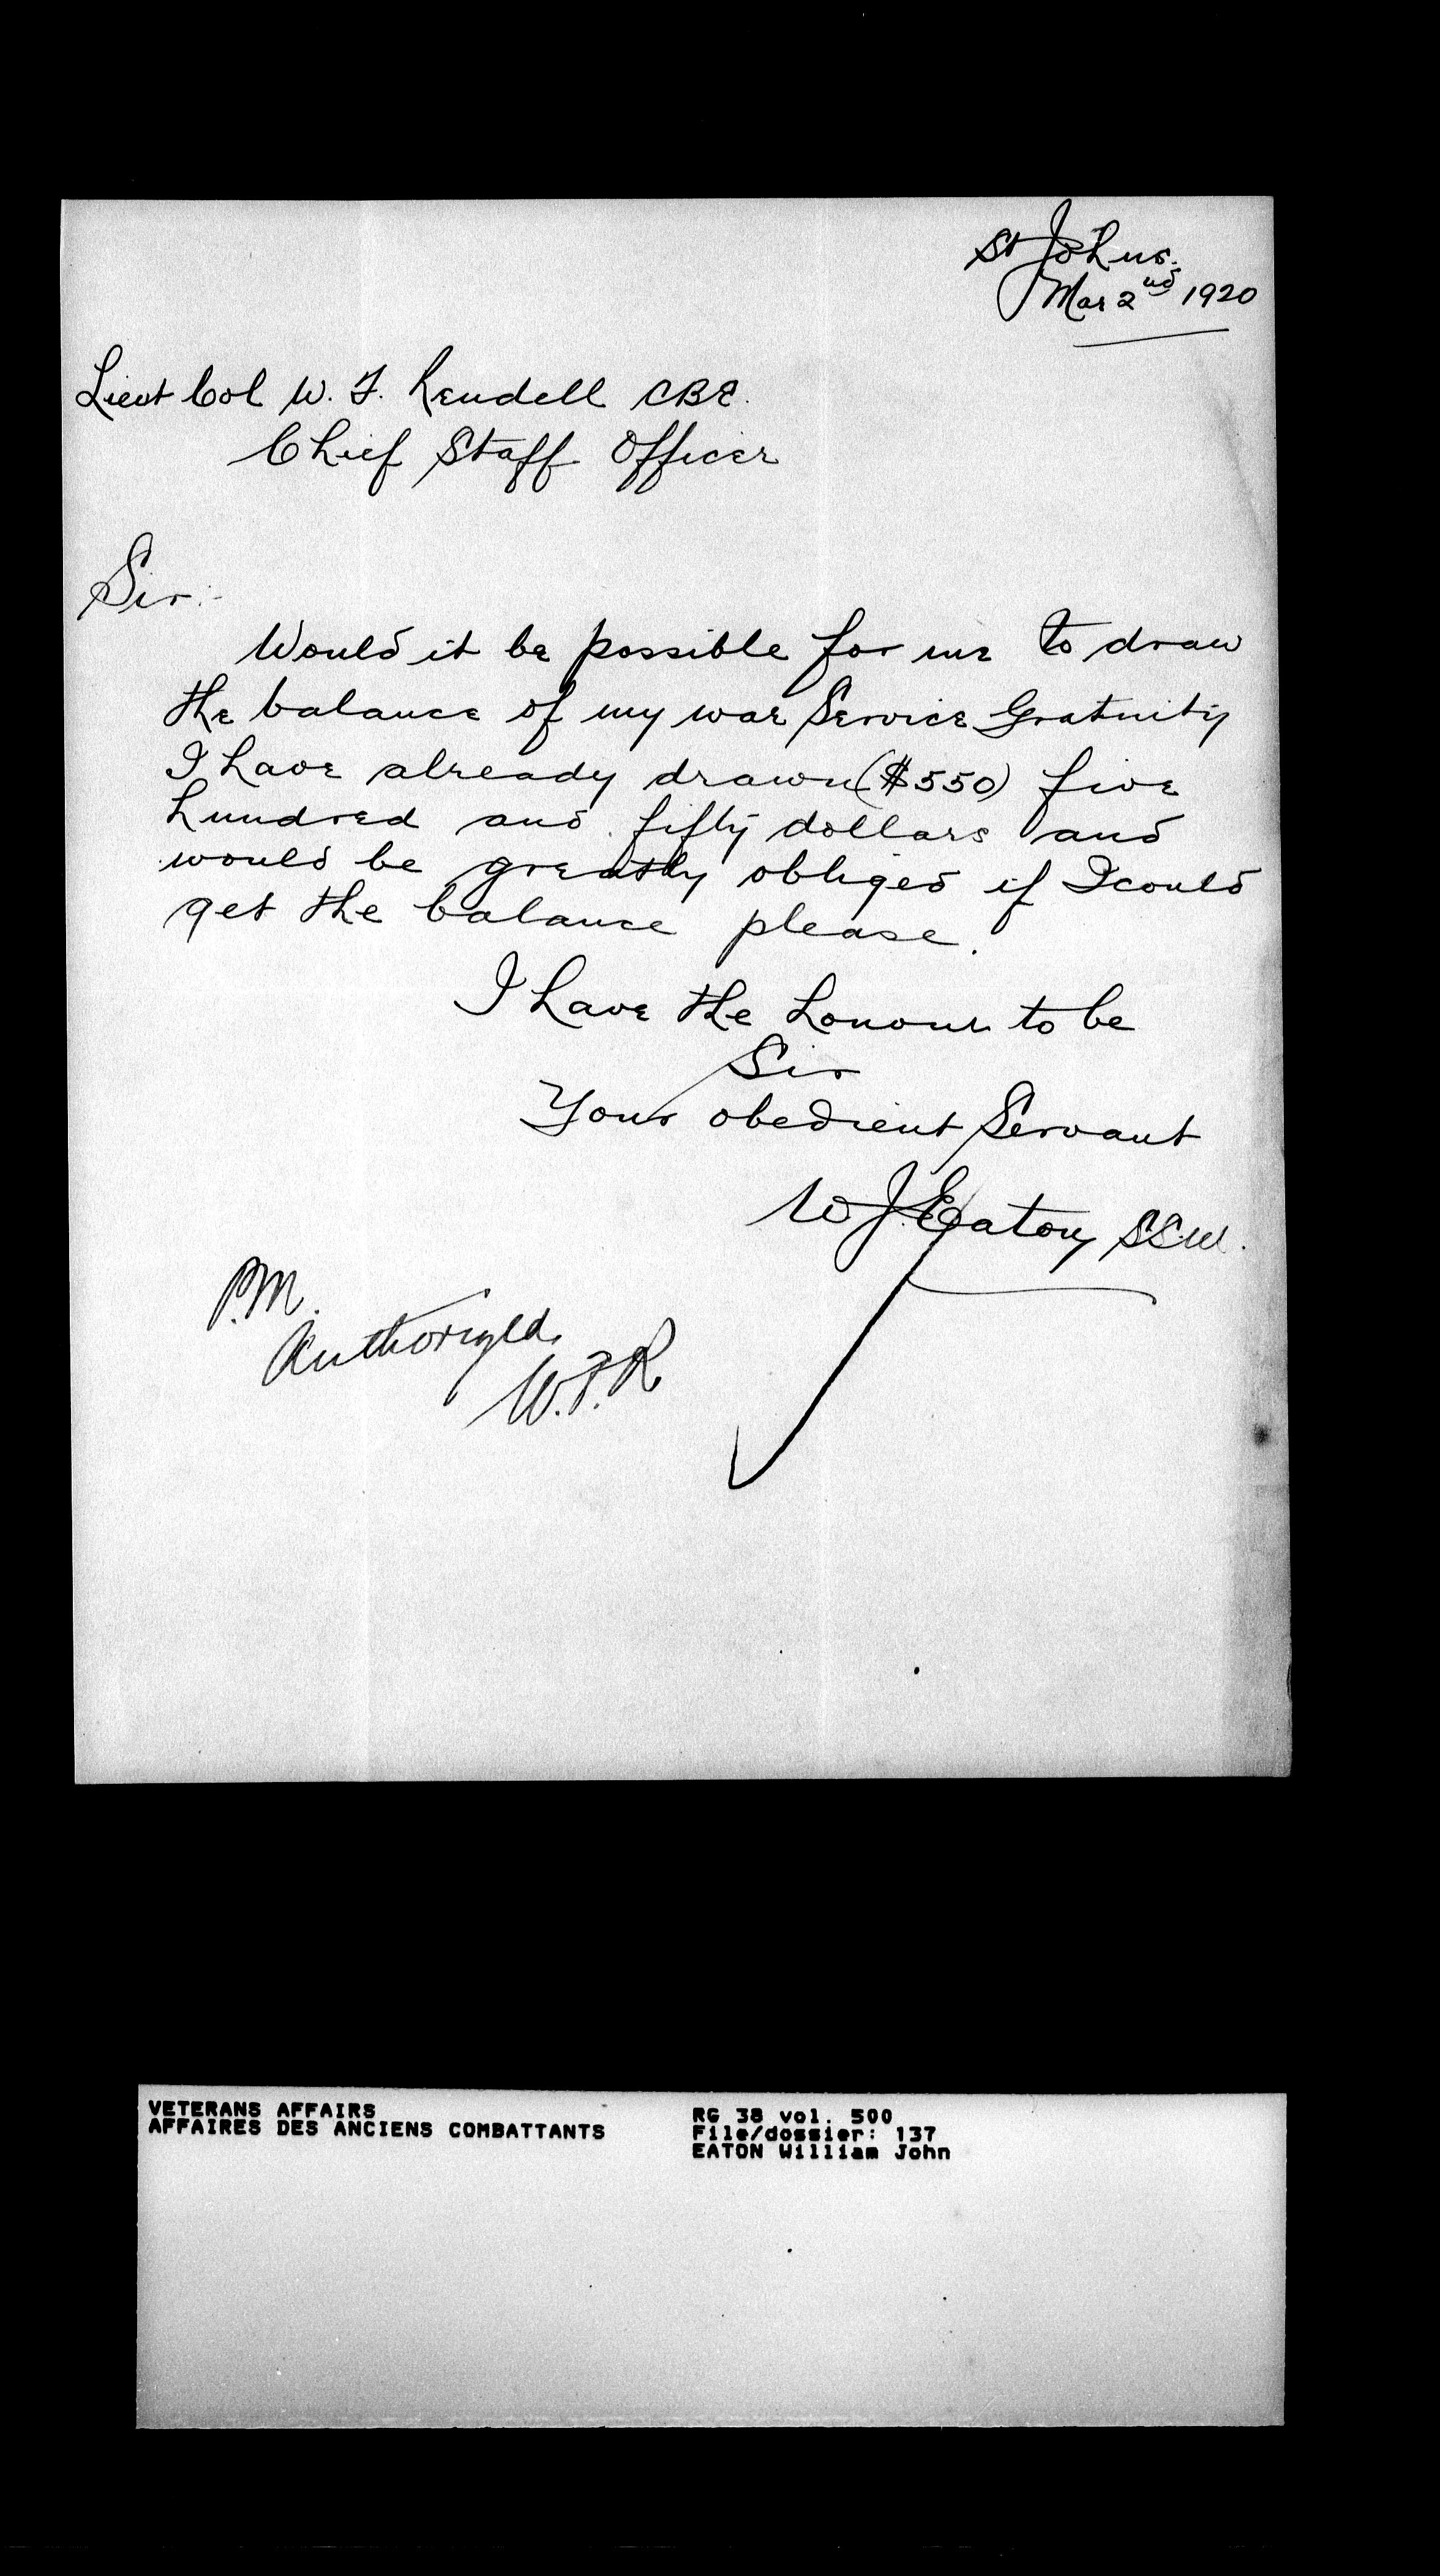 St Johns.
Mar 2nd 1920
Lieut Col W. F. Rendell CBE.
Chief Staff Officer
Sir:-
Would it be possible for me to draw
the balance of my war Service Gratuity
I have already drawn ($550) five
hundred and fifty dollars and
would be greatly obliged if I could
get the balance please.
I have the honour to be
Sir
Your obedient Servant
W J Eaton
P.M.
Authorized.
W.F.R.
VETERANS AFFAIRS
AFFAIRES DES ANCIENS COMBATTANTS
RG 38 vol. 500
File/dossier: 137
EATON William John